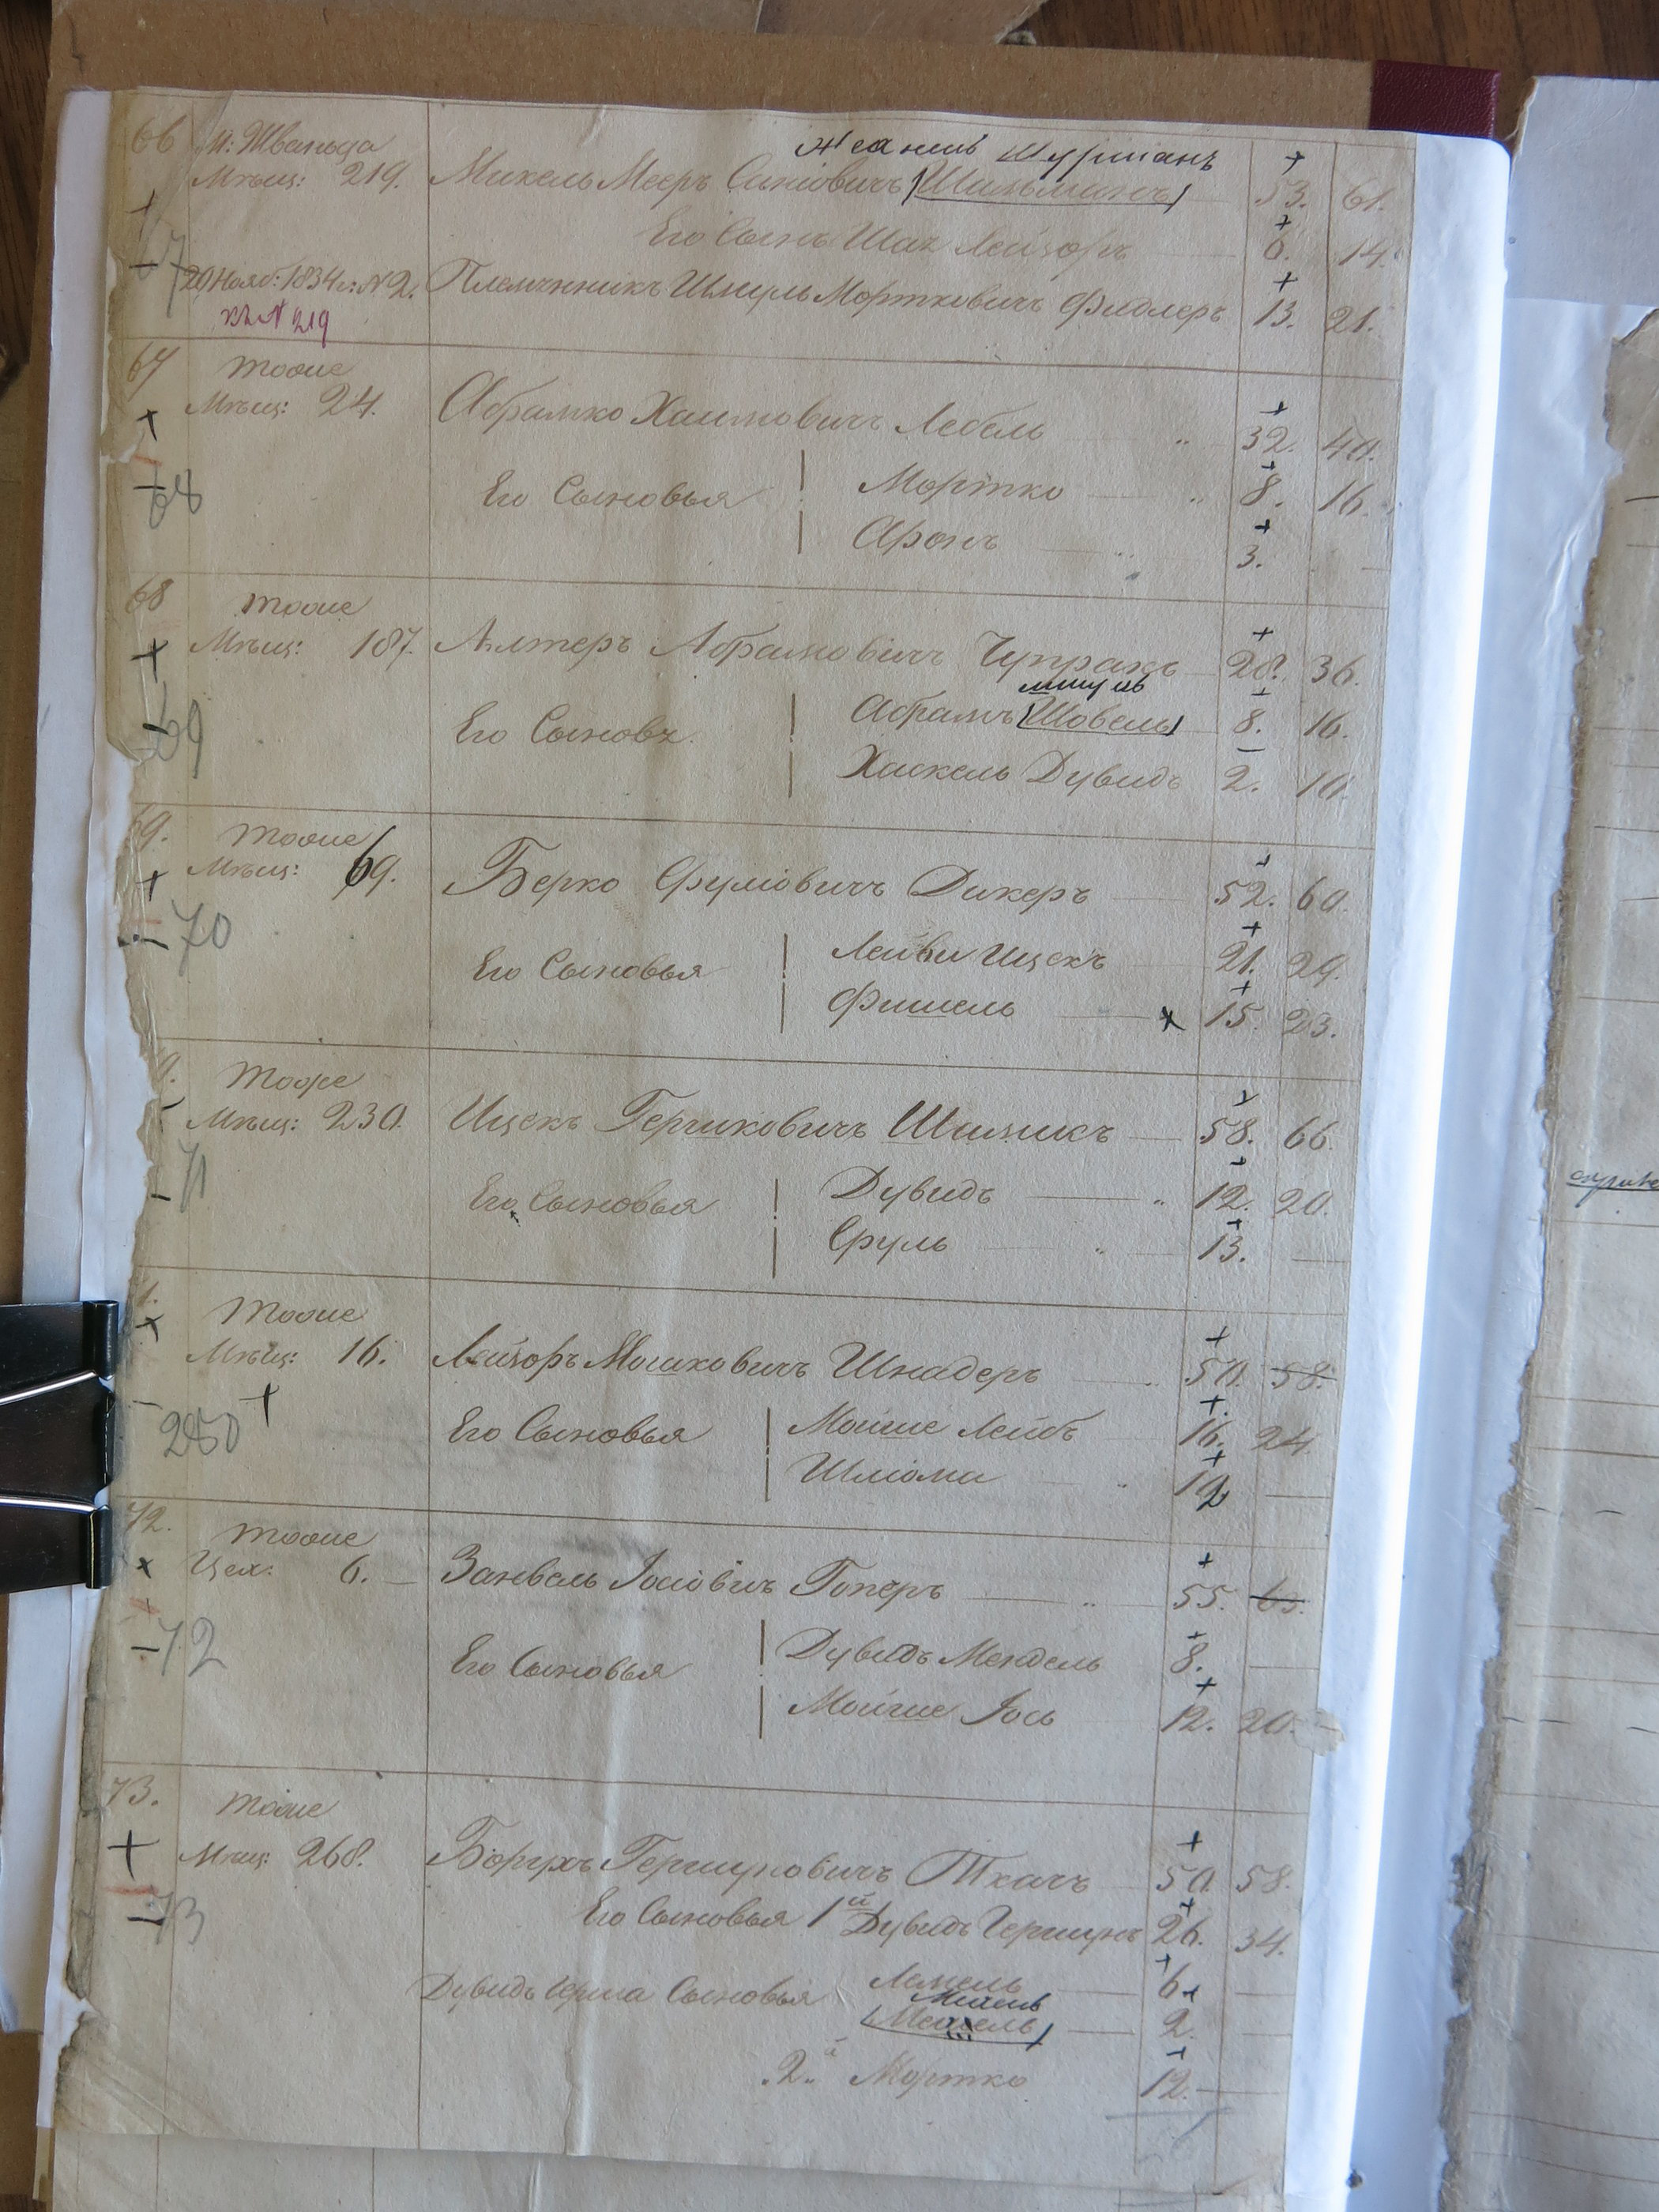 66 м: Жванца
Мѣщ: 219. Михель Мееръ Сыновичъ (Шильманъ) 53. 61.
Шурманъ
Его Сынъ Шая Лейзоръ 6. 14.
67
20 Нояб: 1834 г: №2. Племянникъ Шмуль Мортковичъ Фидлеръ 13. 21.
къ № 219
67 тоже
Мѣщ: 24. Абрамко Хаимовичъ Лебель 32. 40.
68 Его Сыновья Мортко 8. 16.
Аронъ 3. —
68 тоже
Мѣщ: 187. Алтеръ Абрамовичъ Чупракъ 28. 36.
69 Его Сыновя Абрамъ (Шовель) 8. 16.
Хаскель Дувидъ 2. 10.
69. тоже
Мѣщ: 69. Берко Сруліовичъ Дикеръ 52. 60.
70 Его Сыновья Лейви Ицекъ 21. 29.
Фишель 15. 23.
тоже
Мѣщ: 230. Ицекъ Гершковичъ Шишикъ 58. 66.
71 Его Сыновья Дувидъ 12. 20.
Сруль 13. —
1. тоже
Мѣщ: 16. Лейзоръ Мошковичъ Шнадеръ 50. 58.
280 Его Сыновья Мойше Лейбъ 16. 24.
Шліома 12 —
72. тоже
Цех: 6. Занвель Іосіовичъ Гоперъ 55. 63.
72 Его Сыновья Дувидъ Мендель 8. —
Мойше Іось 12. 20.
73. тоже
Мѣщ: 268. Борухъ Гершуновичъ Ткачъ 50. 58.
73 Его Сыновья 1й Дувидъ Гершунъ 26. 34.
Дувидъ Герша Сыновья Лемель 6 —
2. —
2й Мортко 12. —